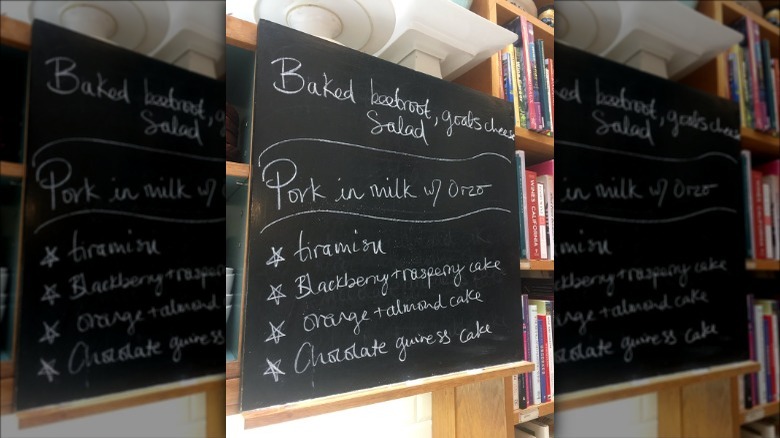 Baked beetroot, goats cheese
Salad
Pork in milk w/ Orzo
tiramisu
Blackberry + rasperry cake
orange + almond cake
Chocolate guiness cake
WINES CALIFORNIA